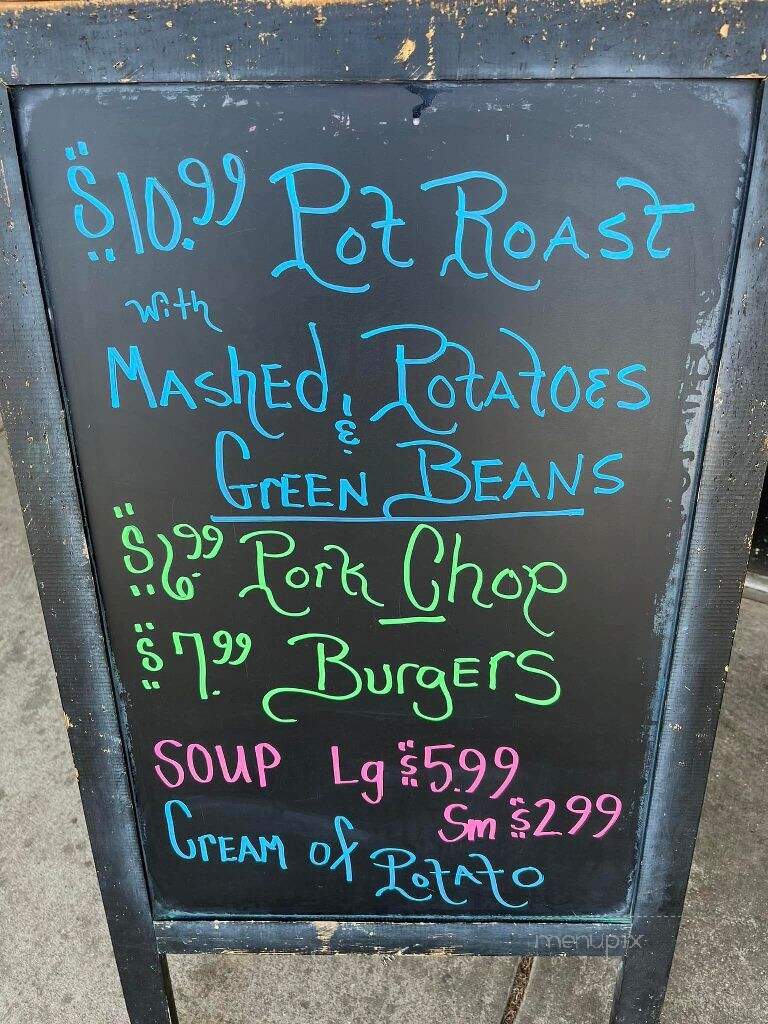 $10.99 Pot Roast
with
Mashed Potatoes
&
Green Beans
$6.99 Pork Chop
$7.99 Burgers
SOUP Lg $5.99
Sm $2.99
Cream of Potato
menupix